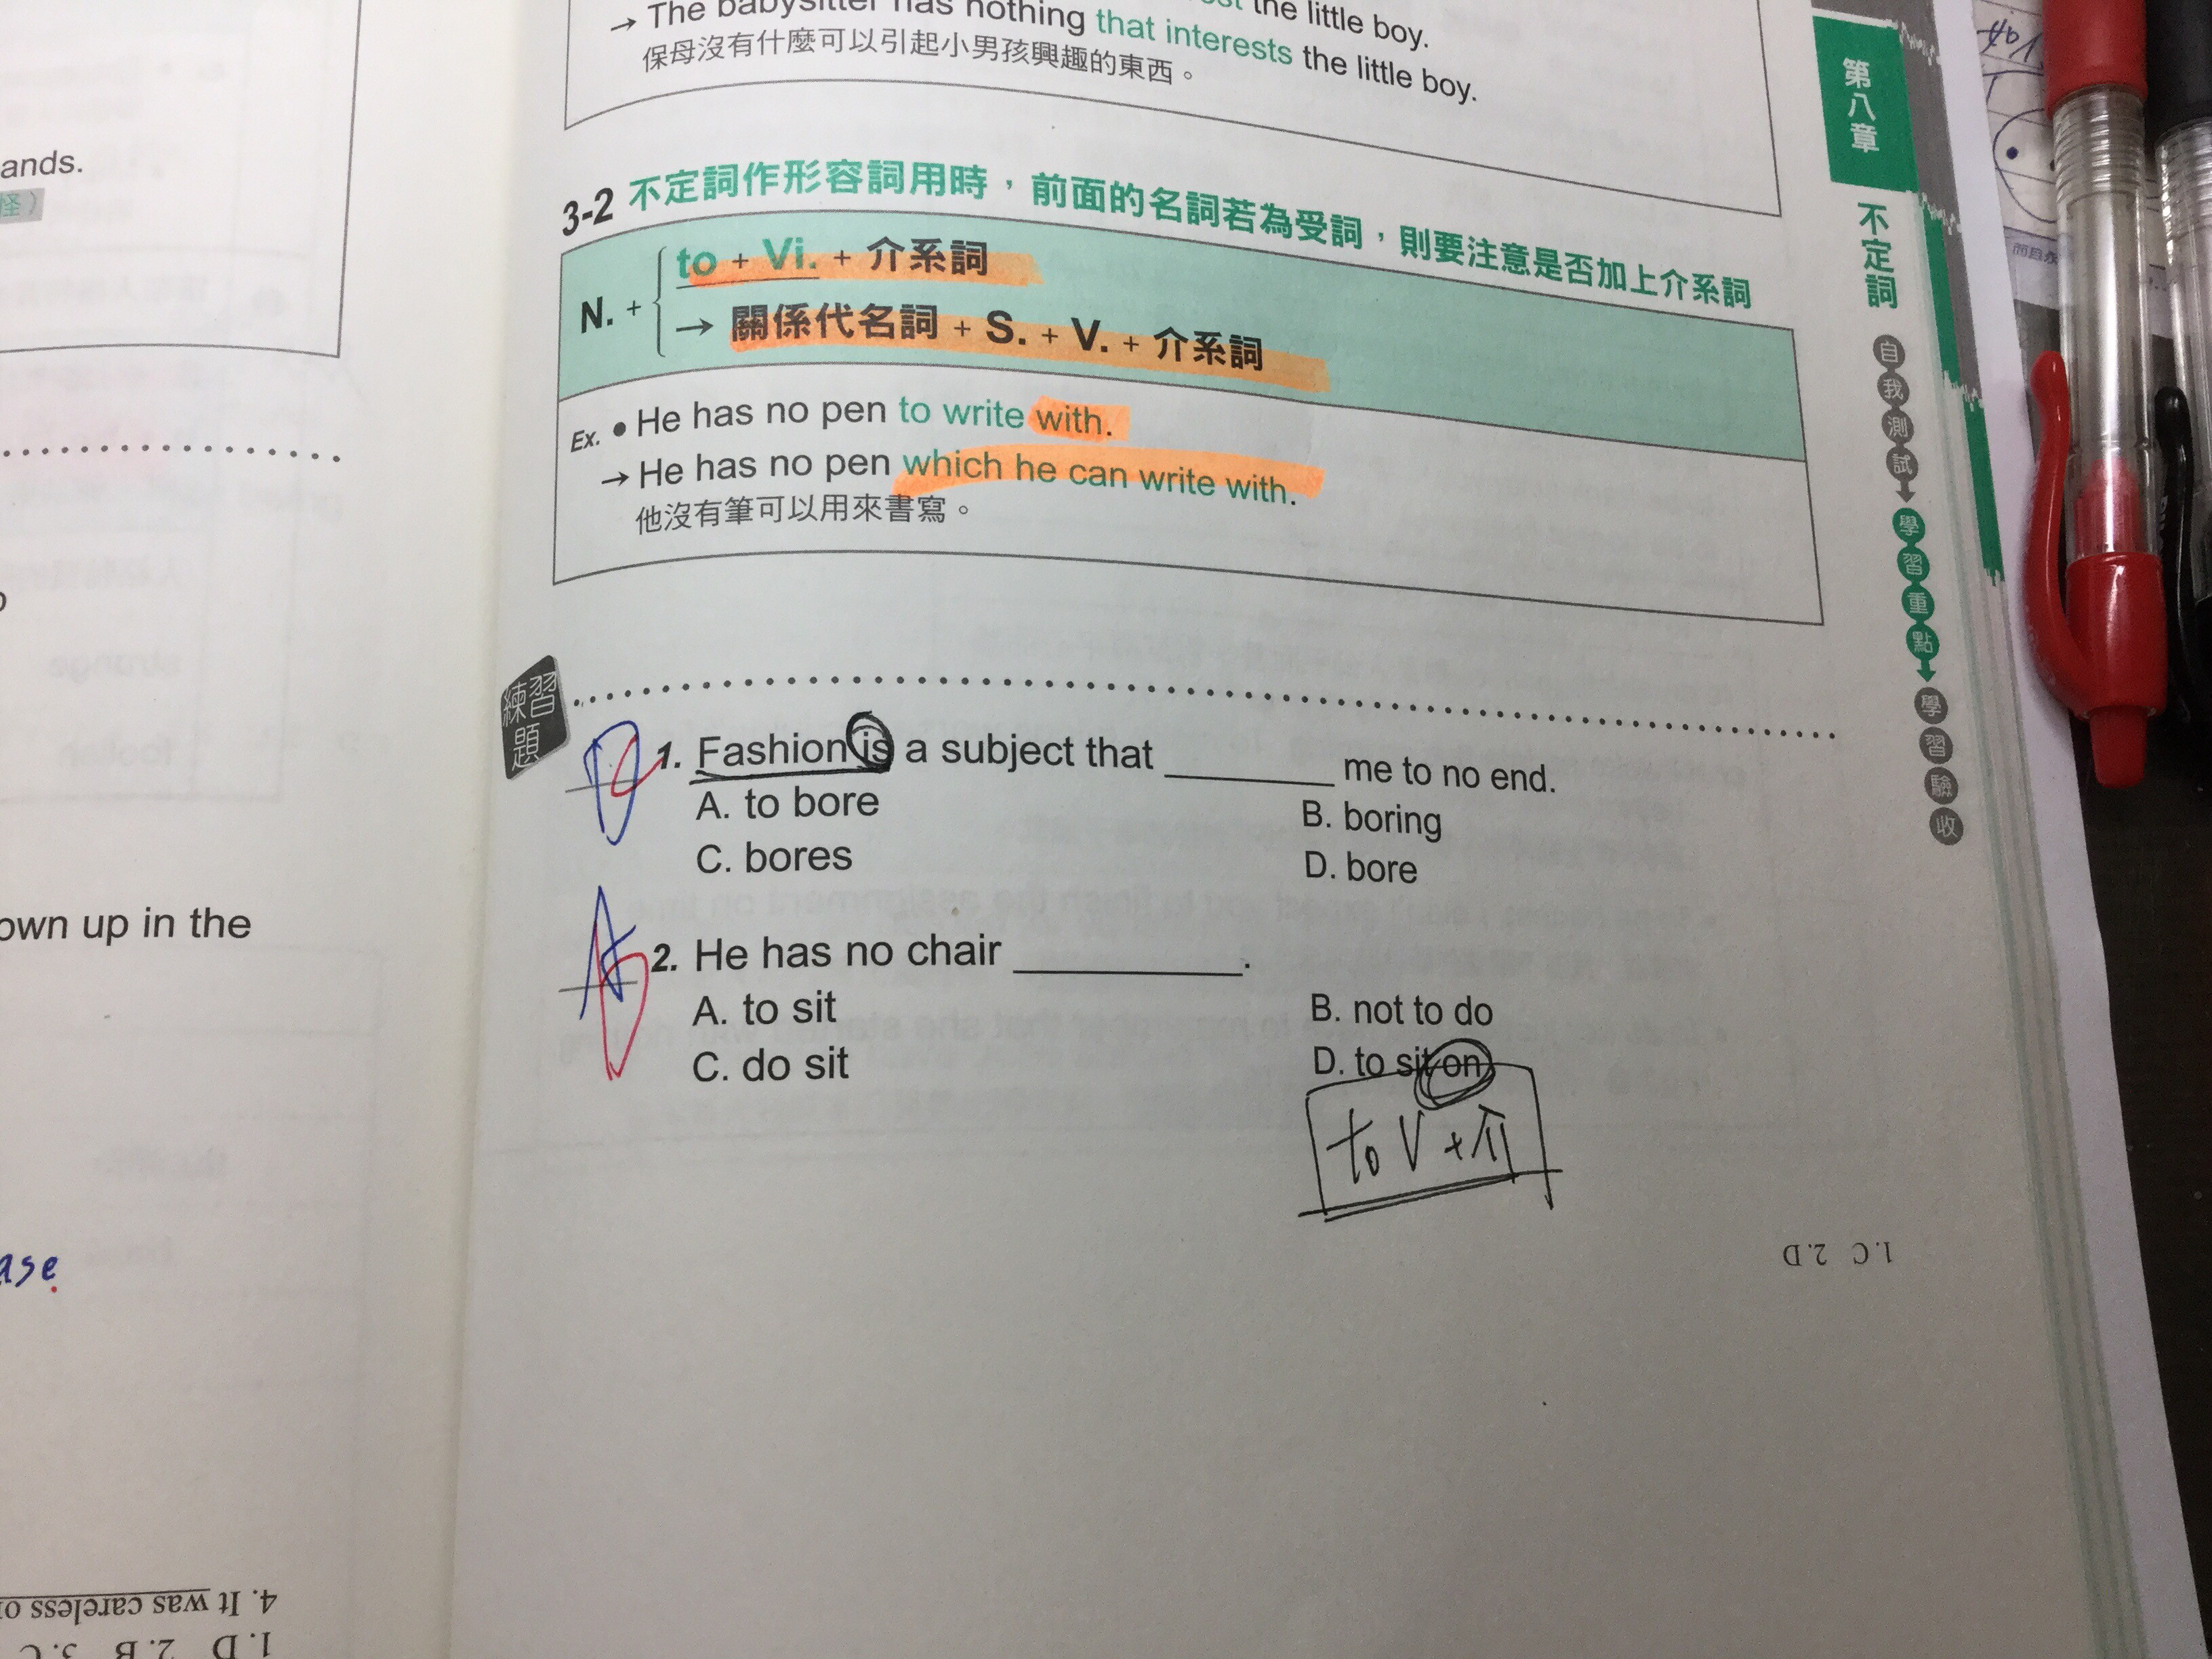 the little boy.
→ The babysitter has nothing that interests the little boy.
保母沒有什麼可以引起小男孩興趣的東西。
3-2 不定詞作形容詞用時,前面的名詞若為受詞,則要注意是否加上介系詞
N. + to + Vi. + 介系詞
→ 關係代名詞 + S. + V. + 介系詞
Ex. • He has no pen to write with.
→ He has no pen which he can write with.
他沒有筆可以用來書寫。
練習題
1. Fashion is a subject that ________ me to no end.
A. to bore
B. boring
C. bores
D. bore
2. He has no chair ________.
A. to sit
B. not to do
C. do sit
D. to sit on
to V + 介
1. C 2. D
第八章
不定詞
自我測試
學習重點
學習驗收
ands.
怪)
own up in the
ase
4. It was careless
1. D 2. B 3. C